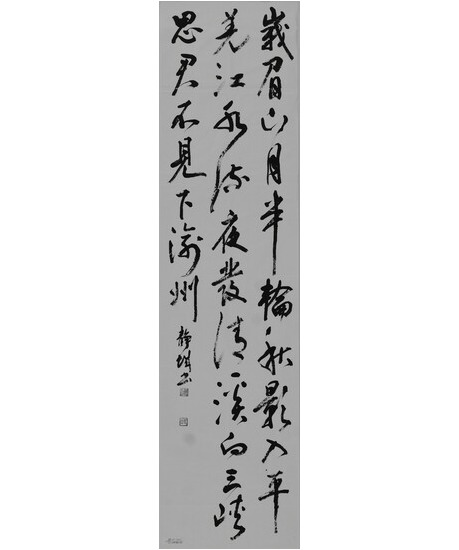 峩眉山月半輪秋影入平
羌江水流夜發清溪向三峽
思君不見下渝州
靜書